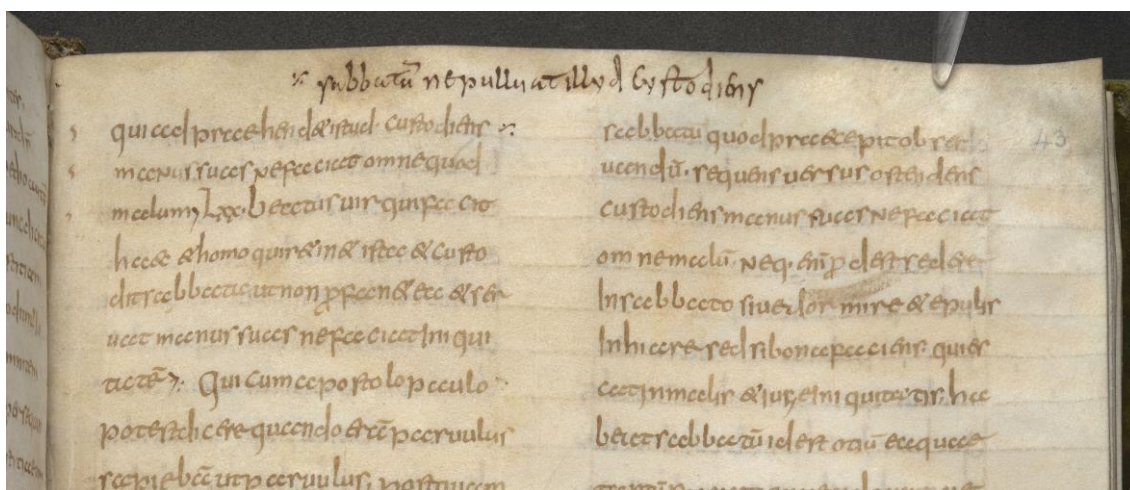 sabbatū ne pulluat illud custodiens
qui adprehend& istud· custodiens
manus suas ne faciat omne quod
malum; Lxx· beatus uir qui facit
haec & homo qui r&in& ista & custo
dit sabbata ut non ꝓfan& ea & ser
uat manus suas ne faciat Ini qui
tatē; Qui cum apostolo paulo
potest dicere quando erā paruulus
sapiebā ut paruulus, postquam
43
sabbatū quod praecepit obser
uandū· sequens uersus ostendens
custodiens manus suas ne faciat
omne malū· neq· enī ꝓdest sedere
In sabbato siue dormire & epulis
Inhiare sed si bona faciens quies
cat In malis & iuge Iniquitatis ha
beat sabbatū id est otiū eaquae